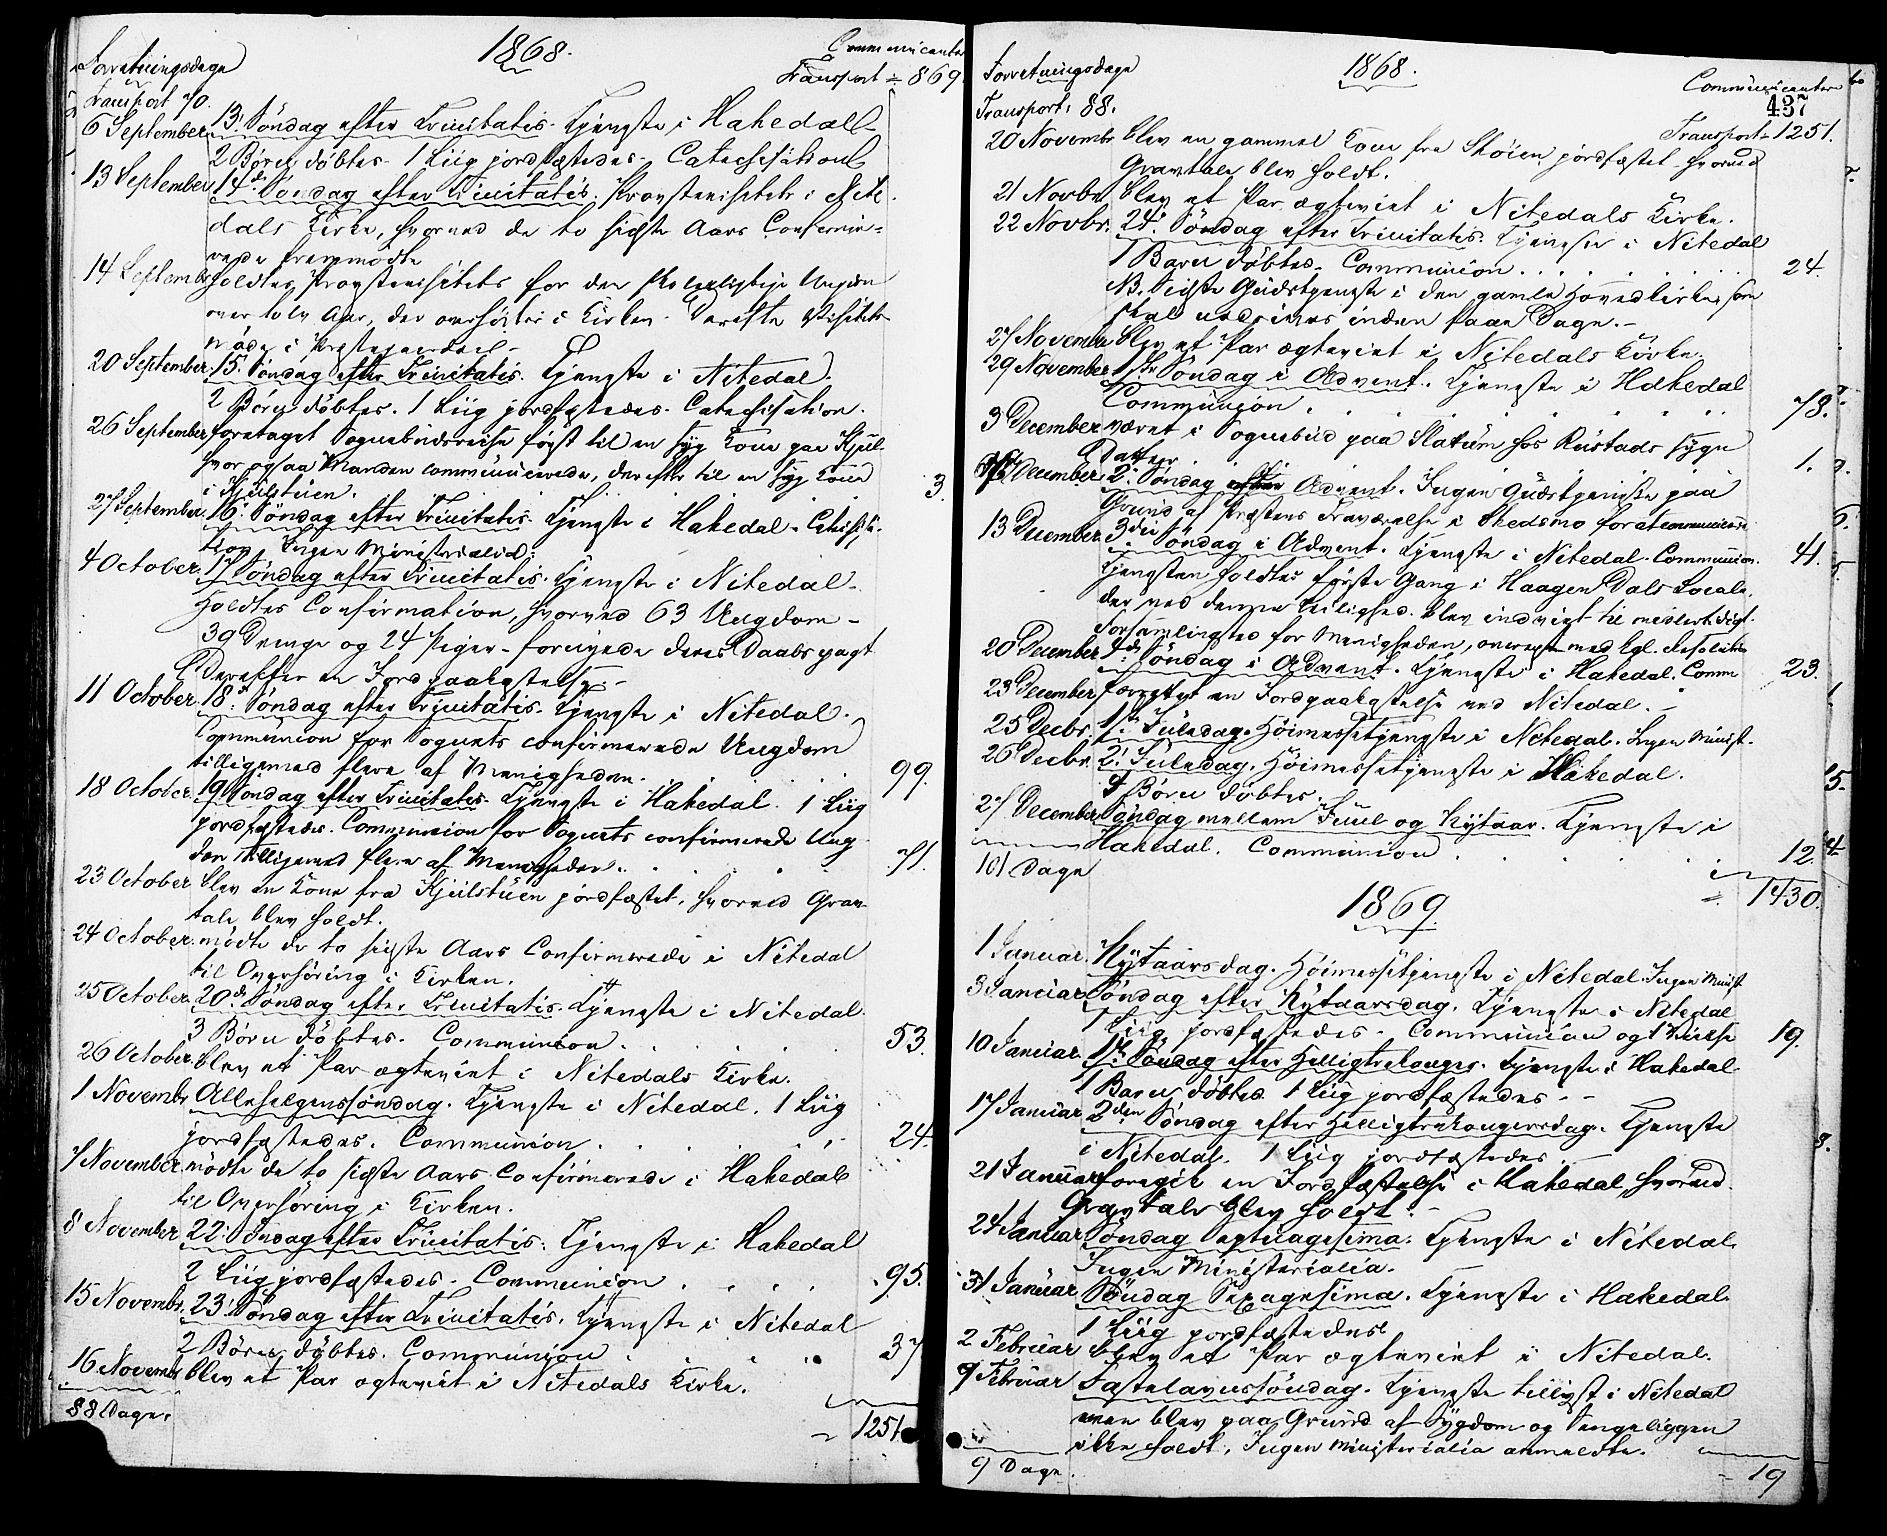 1868.
Forretningsdage
Communicanter
Transport 70.
Transport = 869
6 September 13. Søndag efter Trinitatis. Tjeneste i Hakedal
2 Børn døbtes. 1 Liig jordfæstedes. Catechisation
13 September 14de Søndag efter Trinitatis. Provstevisitats i Nite-
dals Kirke, hvorved de to sidste Aars Confirme-
rede fremmødte
14 Septembr holdtes Provstevisitats for den skolepligtige Ungdom
over tolv Aar, der overhørtes i Kirken. Derefter Visitats-
møde i Præstegaarden.
20 September 15. Søndag efter Trinitatis. Tjeneste i Nitedal.
2 Børn døbtes. 1 Liig jordfæstedes. Catechisation.
26 September foretaget Sognebudsreise først til en syg Kone paa Kjul
hvor ogsaa Manden communicerede, derefter til en syg Kone
i Kjulstuen. 3.
27 September 16. Søndag efter Trinitatis. Tjeneste i Hakedal. Catechisa-
tion. Ingen Ministerialia.
4 October. 17. Søndag efter Trinitatis. Tjeneste i Nitedal.
Holdtes Confirmation, hvorved 63 Ungdom -
39 Drenge og 24 Piger - fornyede deres Daabspagt
Derefter en Jordpaakastelse. -
11 October 18. Søndag efter Trinitatis. Tjeneste i Nitedal.
Communion for Sognets confirmerede Ungdom
tilligemed flere af Menigheden. 99.
18 October 19. Søndag efter Trinitatis. Tjeneste i Hakedal. 1 Liig
jordfæstedes. Communion for Sognets confirmerede Ung-
dom tilligemed flere af Menigheden. 71.
23 October blev en Kone fra Kjulstuen jordfæstet, hvorved Grav-
tale blev holdt.
24 October. mødte de to sidste Aars Confirmerede i Nitedal
til Overhøring i Kirken.
25 October 20de Søndag efter Trinitatis. Tjeneste i Nitedal
3 Børn døbtes. Communion. 53.
26 October. blev et Par ægteviet i Nitedals Kirke.
1 Novembr Allehelgenssøndag. Tjeneste i Nitedal. 1 Liig
jordfæstedes. Communion. 24.
7 November. mødte de to sidste Aars Confirmerede i Hakedal
til Overhøring i Kirken.
8 November 22. Søndag efter Trinitatis. Tjeneste i Hakedal
2 Liig jordfæstedes. Communion. 95.
15 Novembr. 23. Søndag efter Trinitatis. Tjeneste i Nitedal
2 Børn døbtes. Communion 37
16 Novembr blev et Par ægteviet i Nitedals Kirke.
88 Dage. 1251
Forretningsdage
1868.
Communicanter
437
Transport. 88.
Transport = 1251.
20 Novembr blev en gammel Kone fra Skøien jordfæstet, hvorved
Gravtale blev holdt.
21 Novbr blev et Par ægteviet i Nitedals Kirke.
22 Novbr. 24. Søndag efter Trinitatis. Tjeneste i Nitedal
1 Barn døbtes. Communion. 24.
NB. Sidste Gudstjeneste i den gamle Hovedkirke, som
skal nedrives inden faae Dage. -
27 Novembr blev et Par ægteviet i Nitedals Kirke.
29 November 1ste Søndag i Advent. Tjeneste i Hakedal
Communion. 78.
3 December været i Sognebud paa Slatum hos Rustads syge
Datter. 1.
6 December 2. Søndag i Advent. Ingen Gudstjeneste paa
Grund af Præstens Fraværelse i Skedsmo for at communicere
13 December 3die Søndag i Advent. Tjeneste i Nitedal. Communion. 41.
Tjenesten holdtes første Gang i Haagen Dals Locale,
der ved denne Leilighed blev indviet til midlertidigt
Forsamlingssted for Menigheden, overensst. med kgl. Resolution
20 December 4de Søndag i Advent. Tjeneste i Hakedal. Comm 23.
23 December forrettet en Jordpaakastelse ved Nitedal. -
25 Decbr. 1ste Juledag. Høimessetjeneste i Nitedal. Ingen Minist.
26 Decbr. 2. Juledag. Høimessetjeneste i Hakedal.
Børn døbtes.
27 December Søndag mellem Juul og Nytaar. Tjeneste i
Hakedal. Communion. 12.
101 Dage
1430.
1869
1 Januar. Nytaarsdag. Høimessetjeneste i Nitedal. Ingen Minist
3 Januar Søndag efter Nytaarsdag. Tjeneste i Nitedal
1 Liig jordfæstedes. Communion og 1 Vielse 19.
10 Januar 1ste Søndag efter Helligtrekonger. Tjeneste i Hakedal
1 Barn døbtes 1 Liig jordfæstedes - -
17 Januar 2den Søndag efter Helligtrekongersdag. Tjeneste
i Nitedal. 1 Liig jordfæstedes
21 Januar foregik en Jordfæstelse i Hakedal, hvorved
Gravtale blev holdt. -
24 Januar Søndag Septuagesima. Tjeneste i Nitedal
Ingen Ministerialia.
31 Januar Søndag Sexagesima. Tjeneste i Hakedal.
1 Liig jordfæstedes
2 Februar blev et Par ægteviet i Nitedal.
7 Februar Fastelavnssøndag. Tjeneste tillyst i Nitedal
men blev paa Grund af Sygdom og Sengeliggen
ikke holdt. Ingen Ministerialia anmeldte.
9 Dage. 19